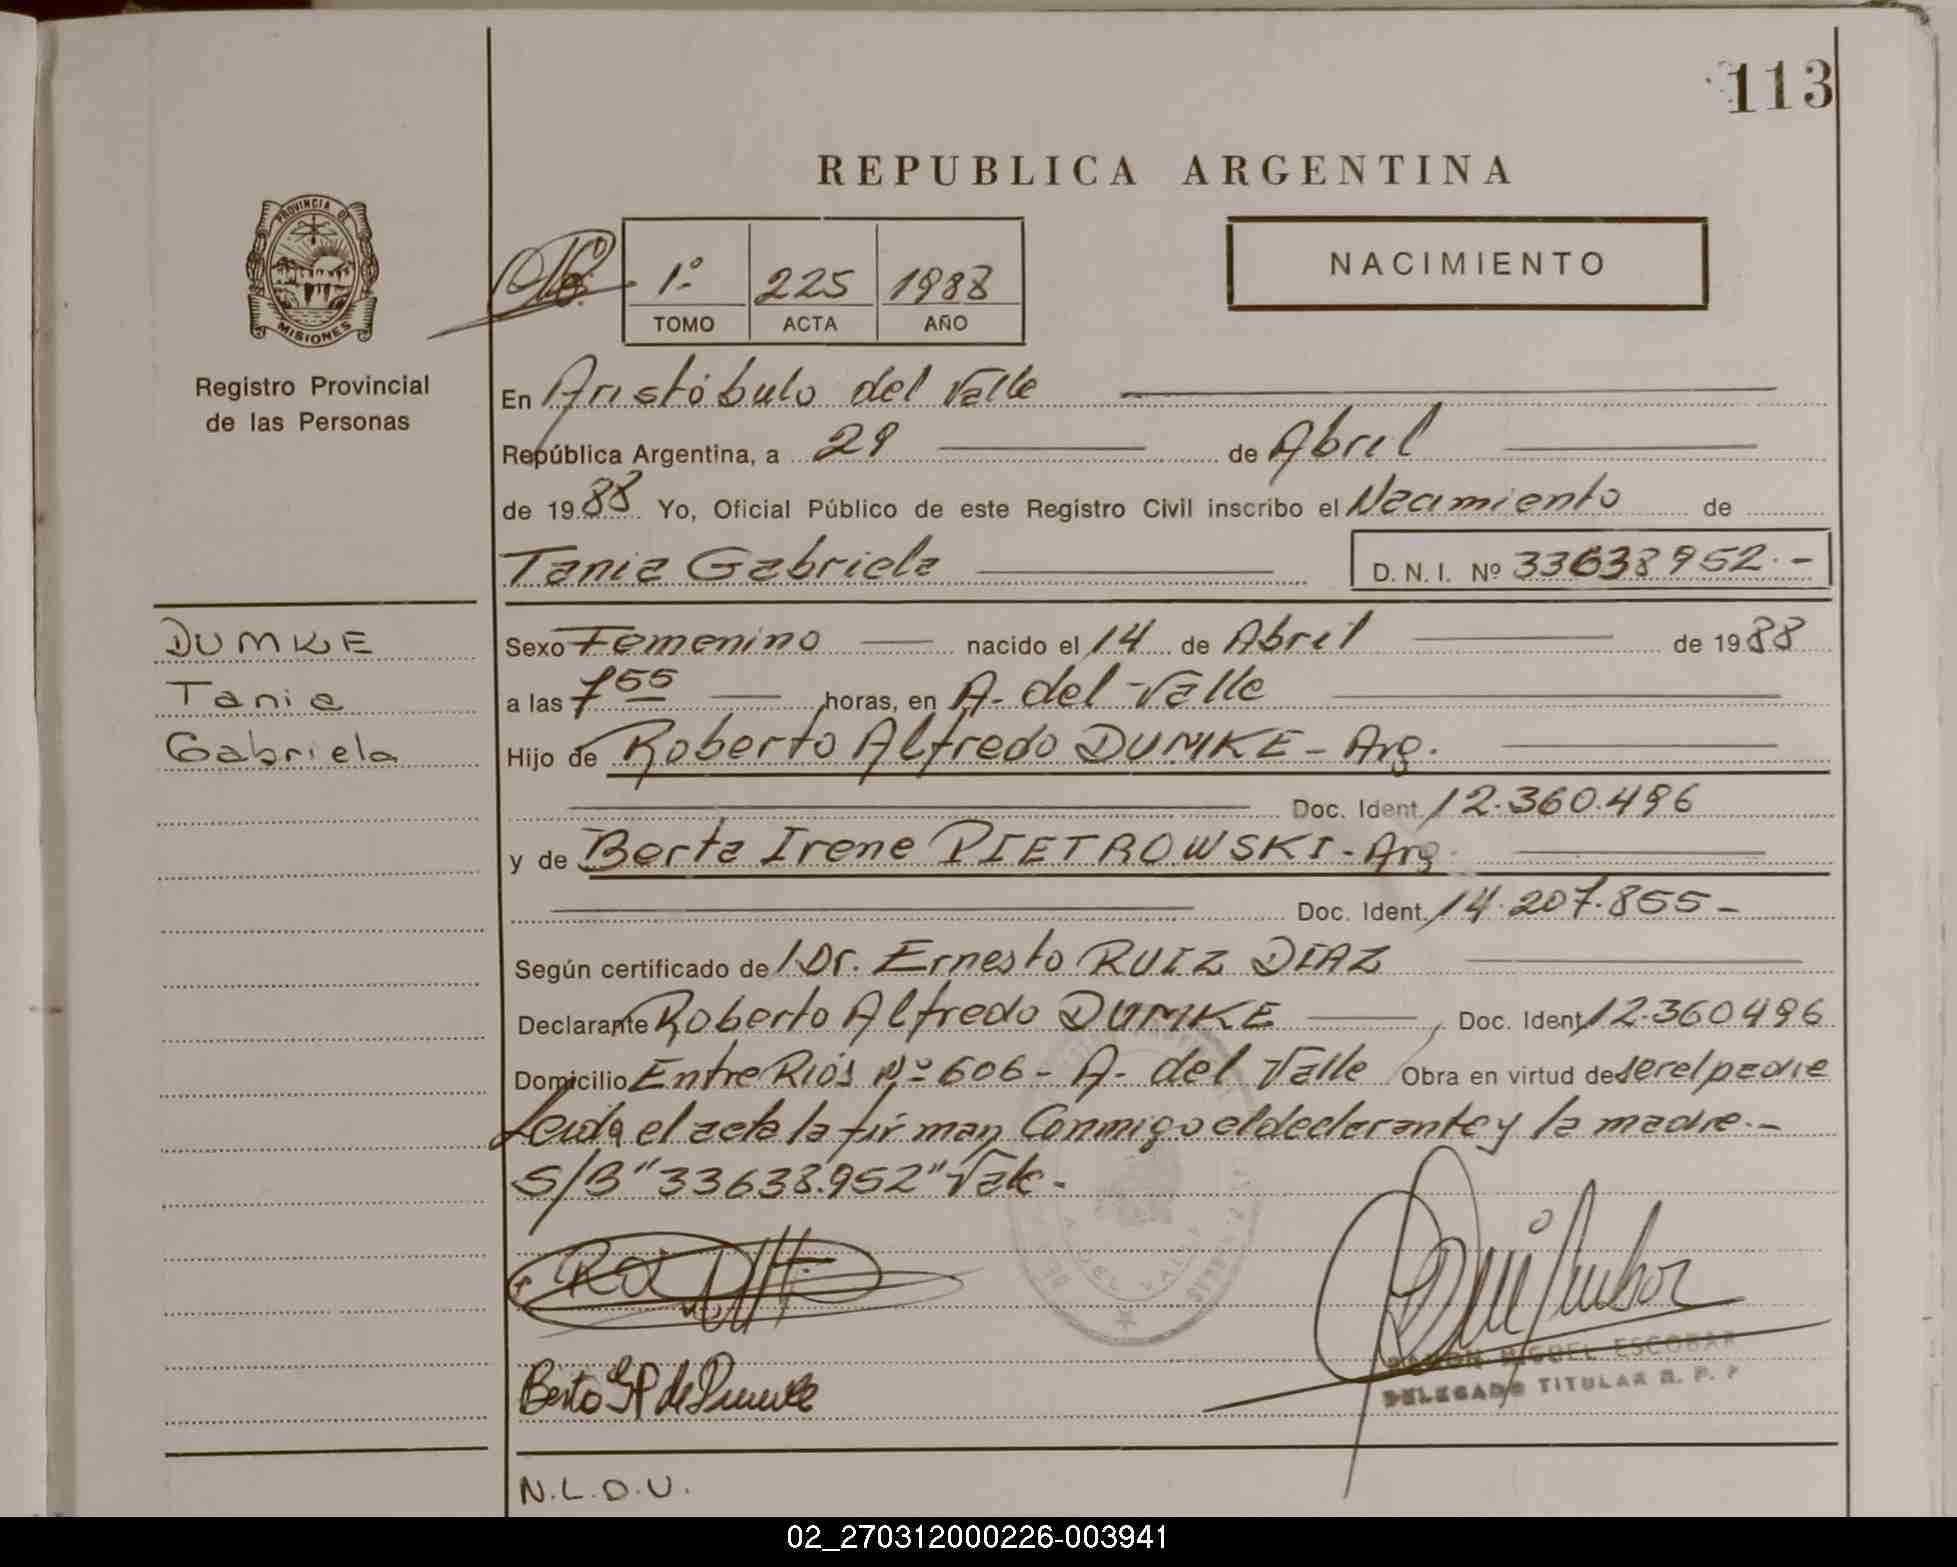 113
REPUBLICA ARGENTINA
PROVINCIA DE
MISIONES
Registro Provincial
de las Personas
1º 225 1988
TOMO ACTA AÑO
NACIMIENTO
En Aristóbulo del Valle
República Argentina, a 29 de Abril
de 1988 Yo, Oficial Público de este Registro Civil inscribo el Nacimiento de
Tania Gabriela D. N. I. Nº 33638952.-
DUMKE
Tania
Gabriela
Sexo Femenino nacido el 14 de Abril de 1988
a las 7 55 horas, en A. del Valle
Hijo de Roberto Alfredo DUMKE - Arg.
Doc. Ident. 12.360.496
y de Berta Irene PIETROWSKI - Arg.
Doc. Ident. 14.207.855-
Según certificado de Dr. Ernesto RUIZ DIAZ
Declarante Roberto Alfredo DUMKE, Doc. Ident. 12.360496
Domicilio Entre Ríos Nº 606 - A. del Valle Obra en virtud de ser el padre
Leida el acta la firman Conmigo el declarante y la madre.-
S/B "33638.952" Vale.-
Berta I P de Dumke
RAMON MIGUEL ESCOBAR
DELEGADO TITULAR R. P. P
N.L.D.U.
02_270312000226-003941